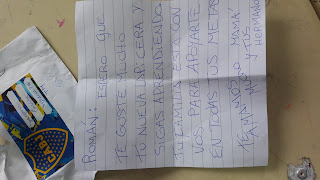 ROMÁN: ESPERO QUE
TE GUSTE MUCHO
TU NUEVA LAPICERA Y
SIGAS APRENDIENDO.
TU FAMILIA ESTÁ CON
VOS PARA APOYARTE
EN TODAS TUS METAS
TE AMAMOS
MAMÁ
Y TUS
HERMANOS
CABJ